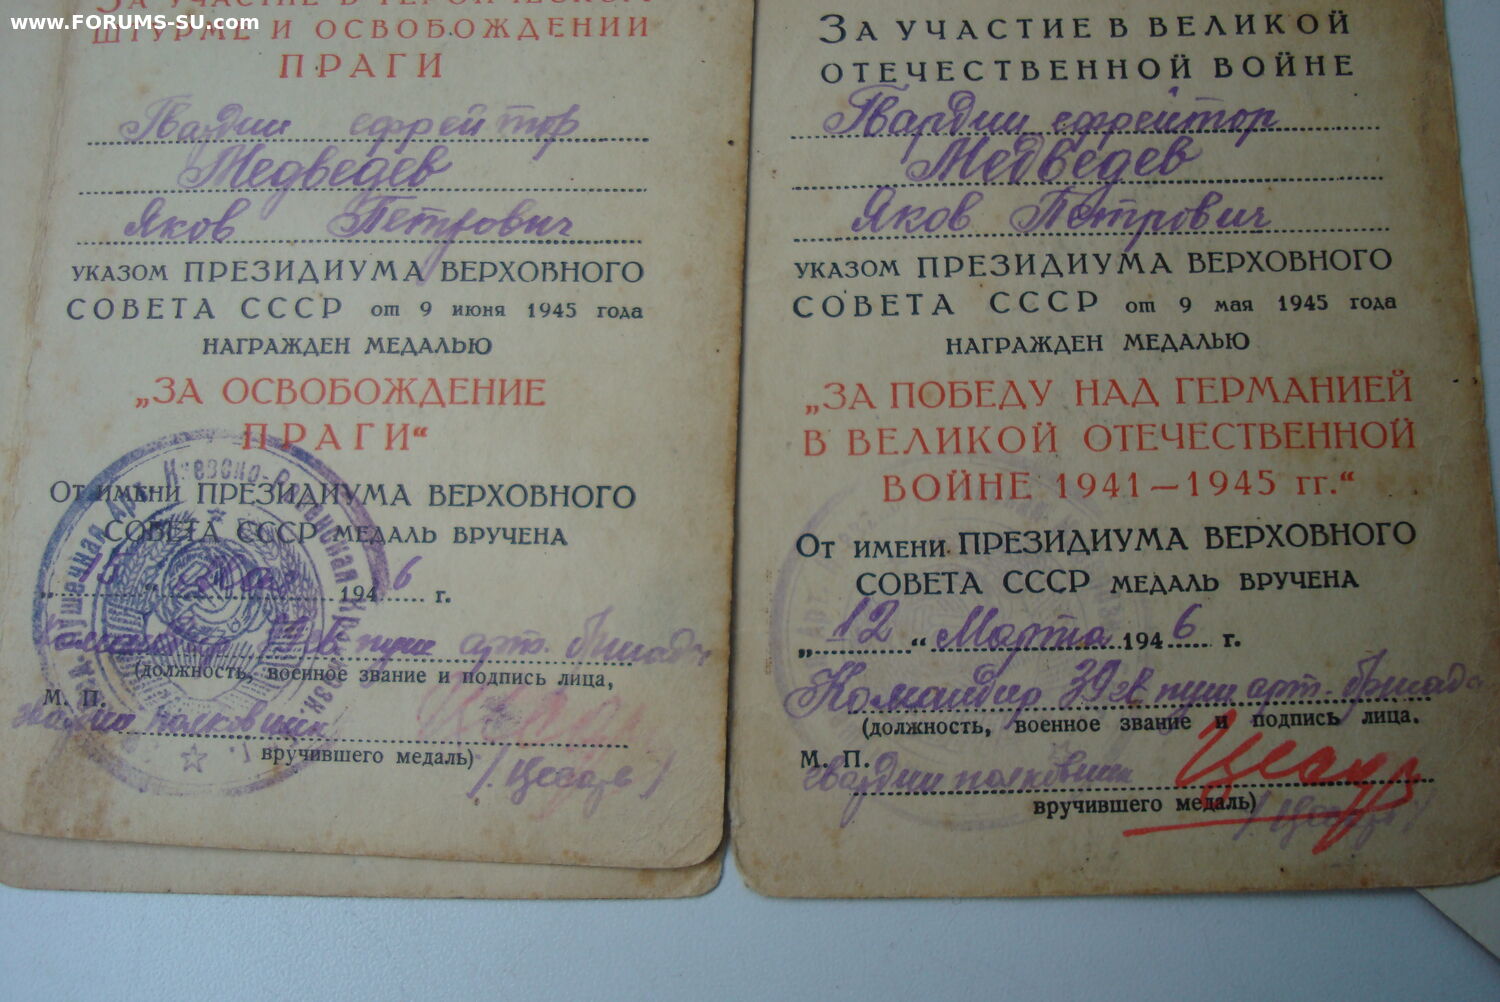 www.FORUMS-SU.com
За участие в героическом
штурме и освобождении
Праги
Гвардии ефрейтор
Медведев
Яков Петрович
указом ПРЕЗИДИУМА ВЕРХОВНОГО
СОВЕТА СССР от 9 июня 1945 года
награжден медалью
„ЗА ОСВОБОЖДЕНИЕ
ПРАГИ“
От имени ПРЕЗИДИУМА ВЕРХОВНОГО
СОВЕТА СССР медаль вручена
194 6 г.
Командир гв пуш арт. бригады
(должность, военное звание и подпись лица,
М. П.
гвардии полковник
вручившего медаль)
/Цесарь/
За участие в Великой
Отечественной войне
Гвардии ефрейтор
Медведев
Яков Петрович
указом ПРЕЗИДИУМА ВЕРХОВНОГО
СОВЕТА СССР от 9 мая 1945 года
награжден медалью
„ЗА ПОБЕДУ НАД ГЕРМАНИЕЙ
В ВЕЛИКОЙ ОТЕЧЕСТВЕННОЙ
ВОЙНЕ 1941—1945 гг.“
От имени ПРЕЗИДИУМА ВЕРХОВНОГО
СОВЕТА СССР медаль вручена
„12“ Марта 194 6 г.
Командир 39 гв пуш арт. бригады
(должность, военное звание и подпись лица.
М. П.
гвардии полковник Цесарь
вручившего медаль)
/Цесарь/